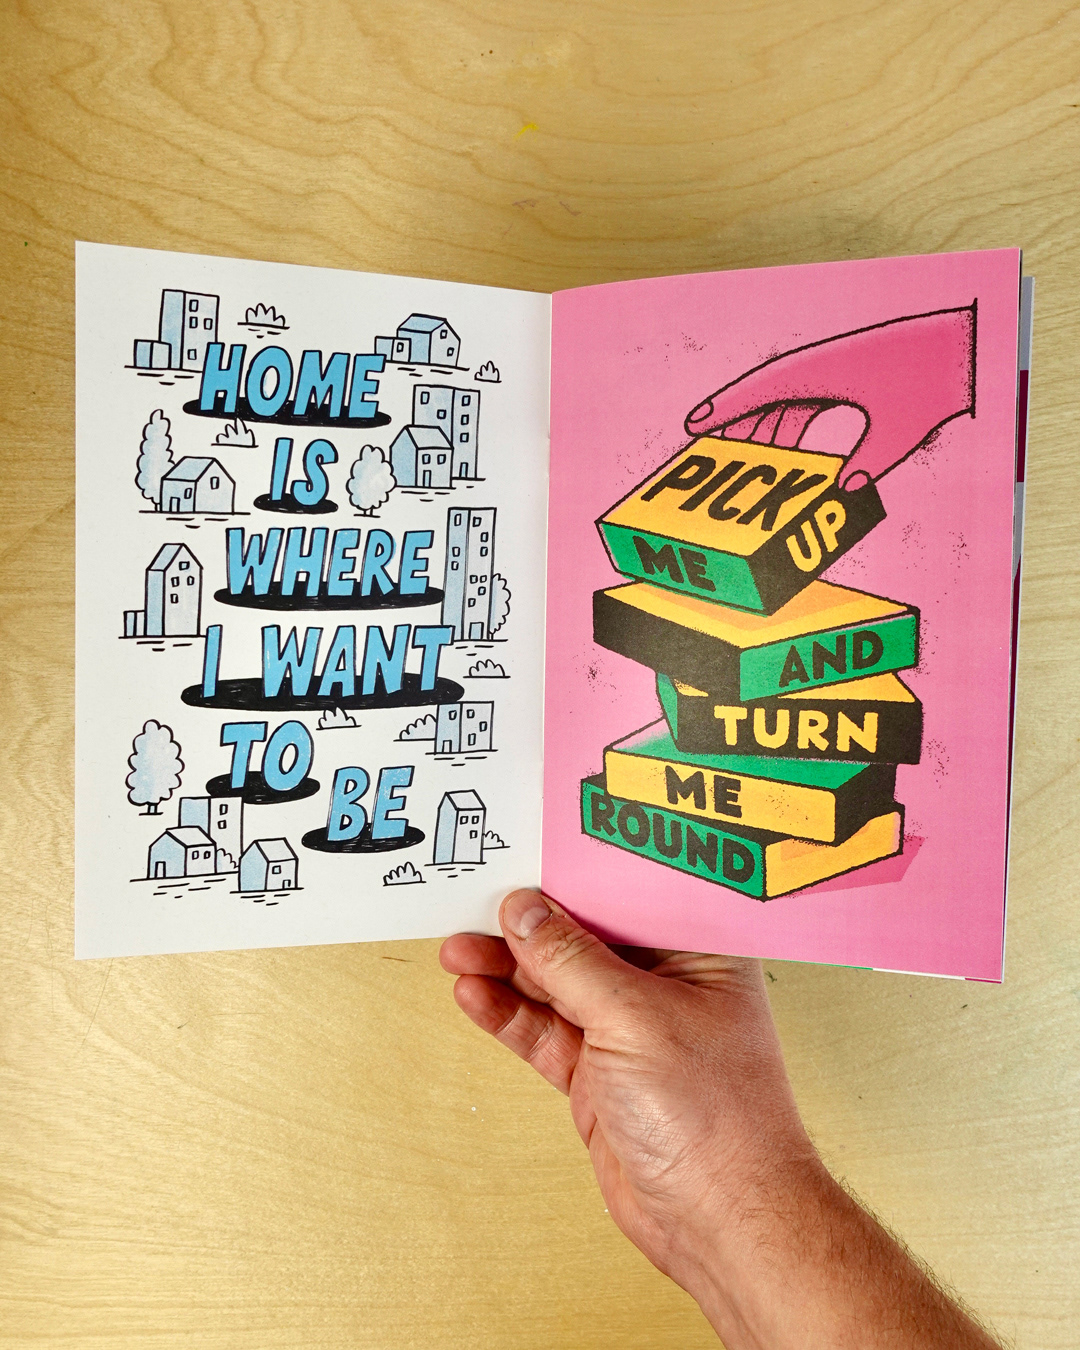 HOME
IS
WHERE
I WANT
TO
BE
PICK
UP
ME
AND
TURN
ME
ROUND